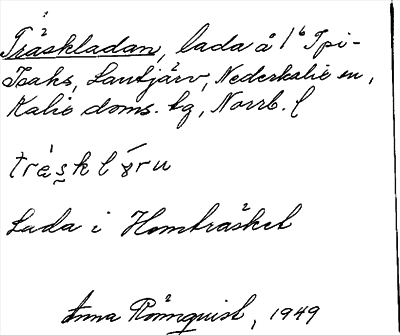 Träskladan, lada å 1⁶ Spi-
Isaks, Lantjärv, Nederkalix sn,
Kalix doms. bg, Norrb. l
Lada i Homträsket
Anna Rönnquist, 1949